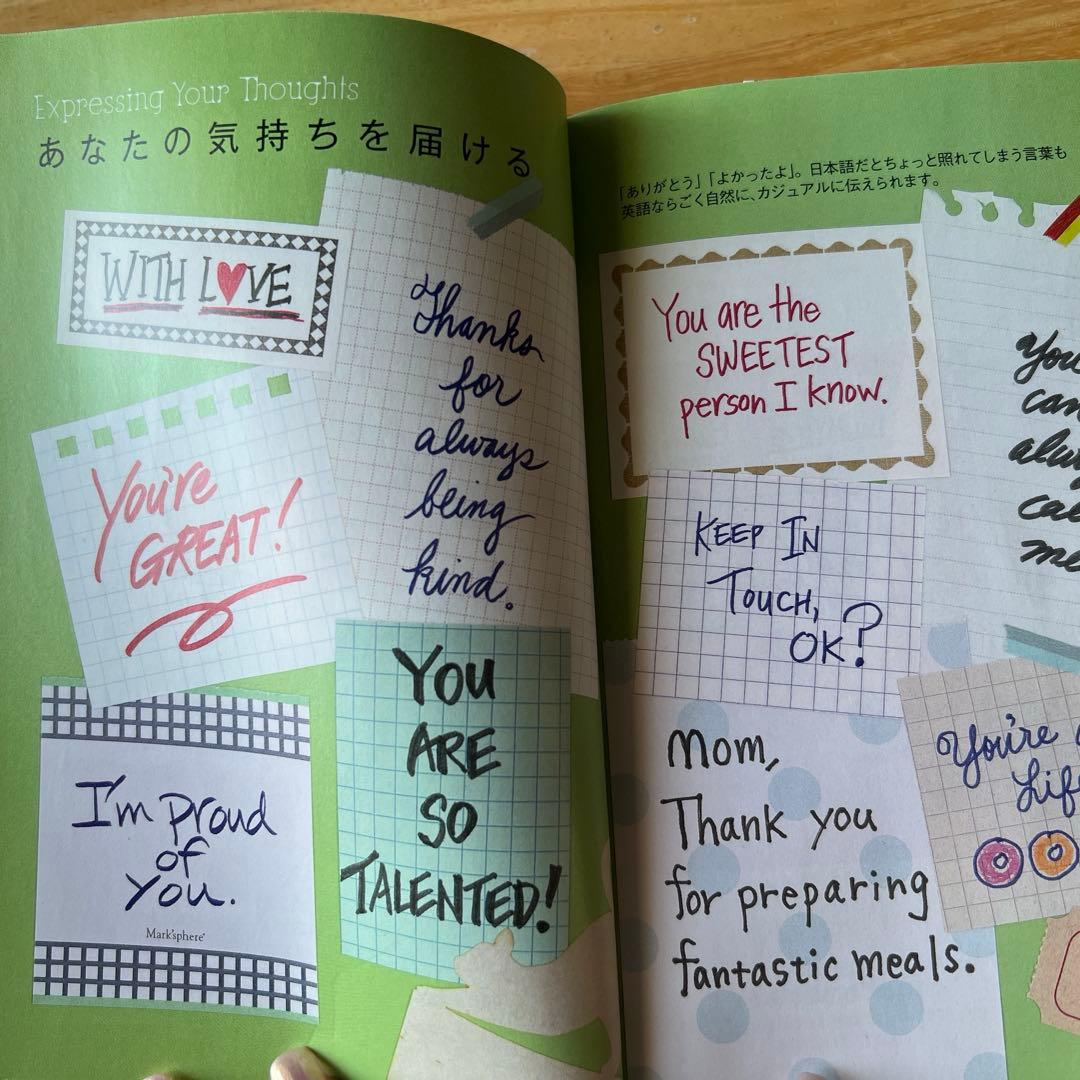 Expressing Your Thoughts
あなたの気持ちを届ける
WITH L♥VE
Thanks
for
always
being
kind.
You're
GREAT!
I'm proud
of
you.
Mark'sphere
YOU
ARE
SO
TALENTED!
「ありがとう」「よかったよ」。日本語だとちょっと照れてしまう言葉も
英語ならごく自然に、カジュアルに伝えられます。
You are the
SWEETEST
person I know.
KEEP IN
TOUCH,
OK?
Mom,
Thank you
for preparing
fantastic meals.
You're
me